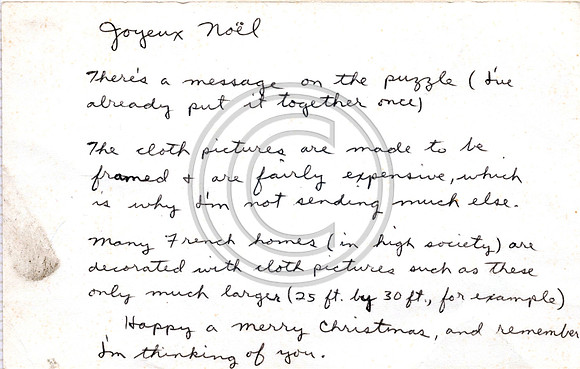 Joyeux Noël
There's a message on the puzzle (I've
already put it together once)
The cloth pictures are made to be
framed & are fairly expensive, which
is why I'm not sending much else.
Many French homes (in high society) are
decorated with cloth pictures such as these
only much larger (25 ft. by 30 ft., for example)
Happy a merry Christmas, and remember
I'm thinking of you.